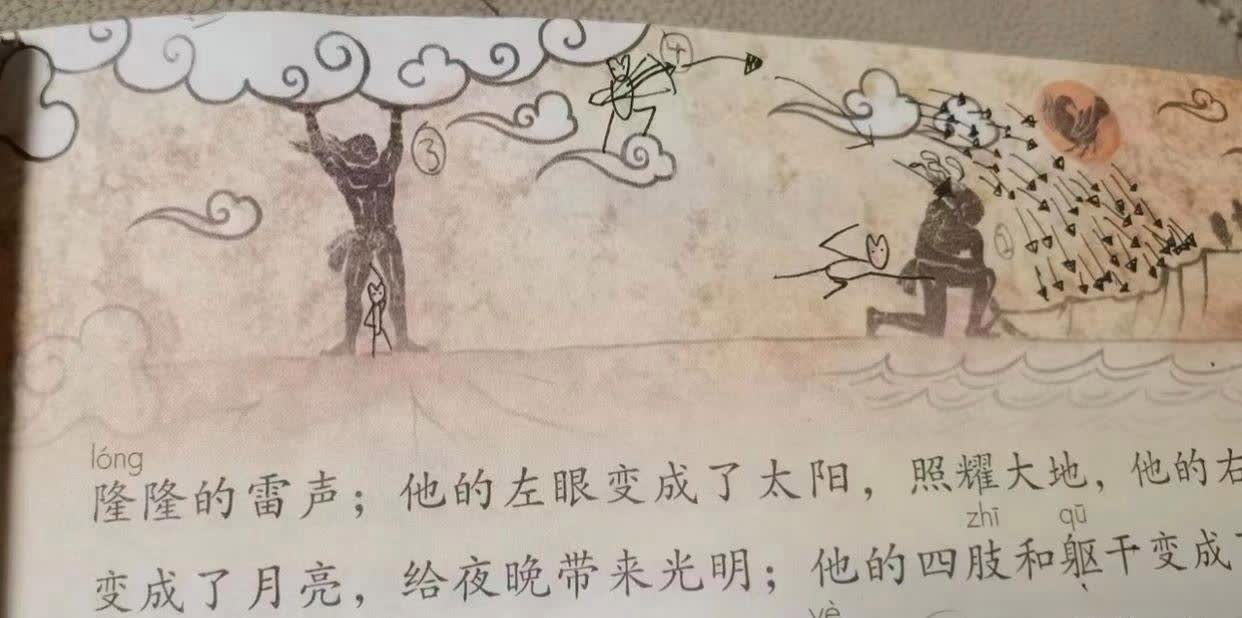 ④
③
①
lóng
隆隆的雷声；他的左眼变成了太阳，照耀大地，他的右
zhī qū
变成了月亮，给夜晚带来光明；他的四肢和躯干变成
yè